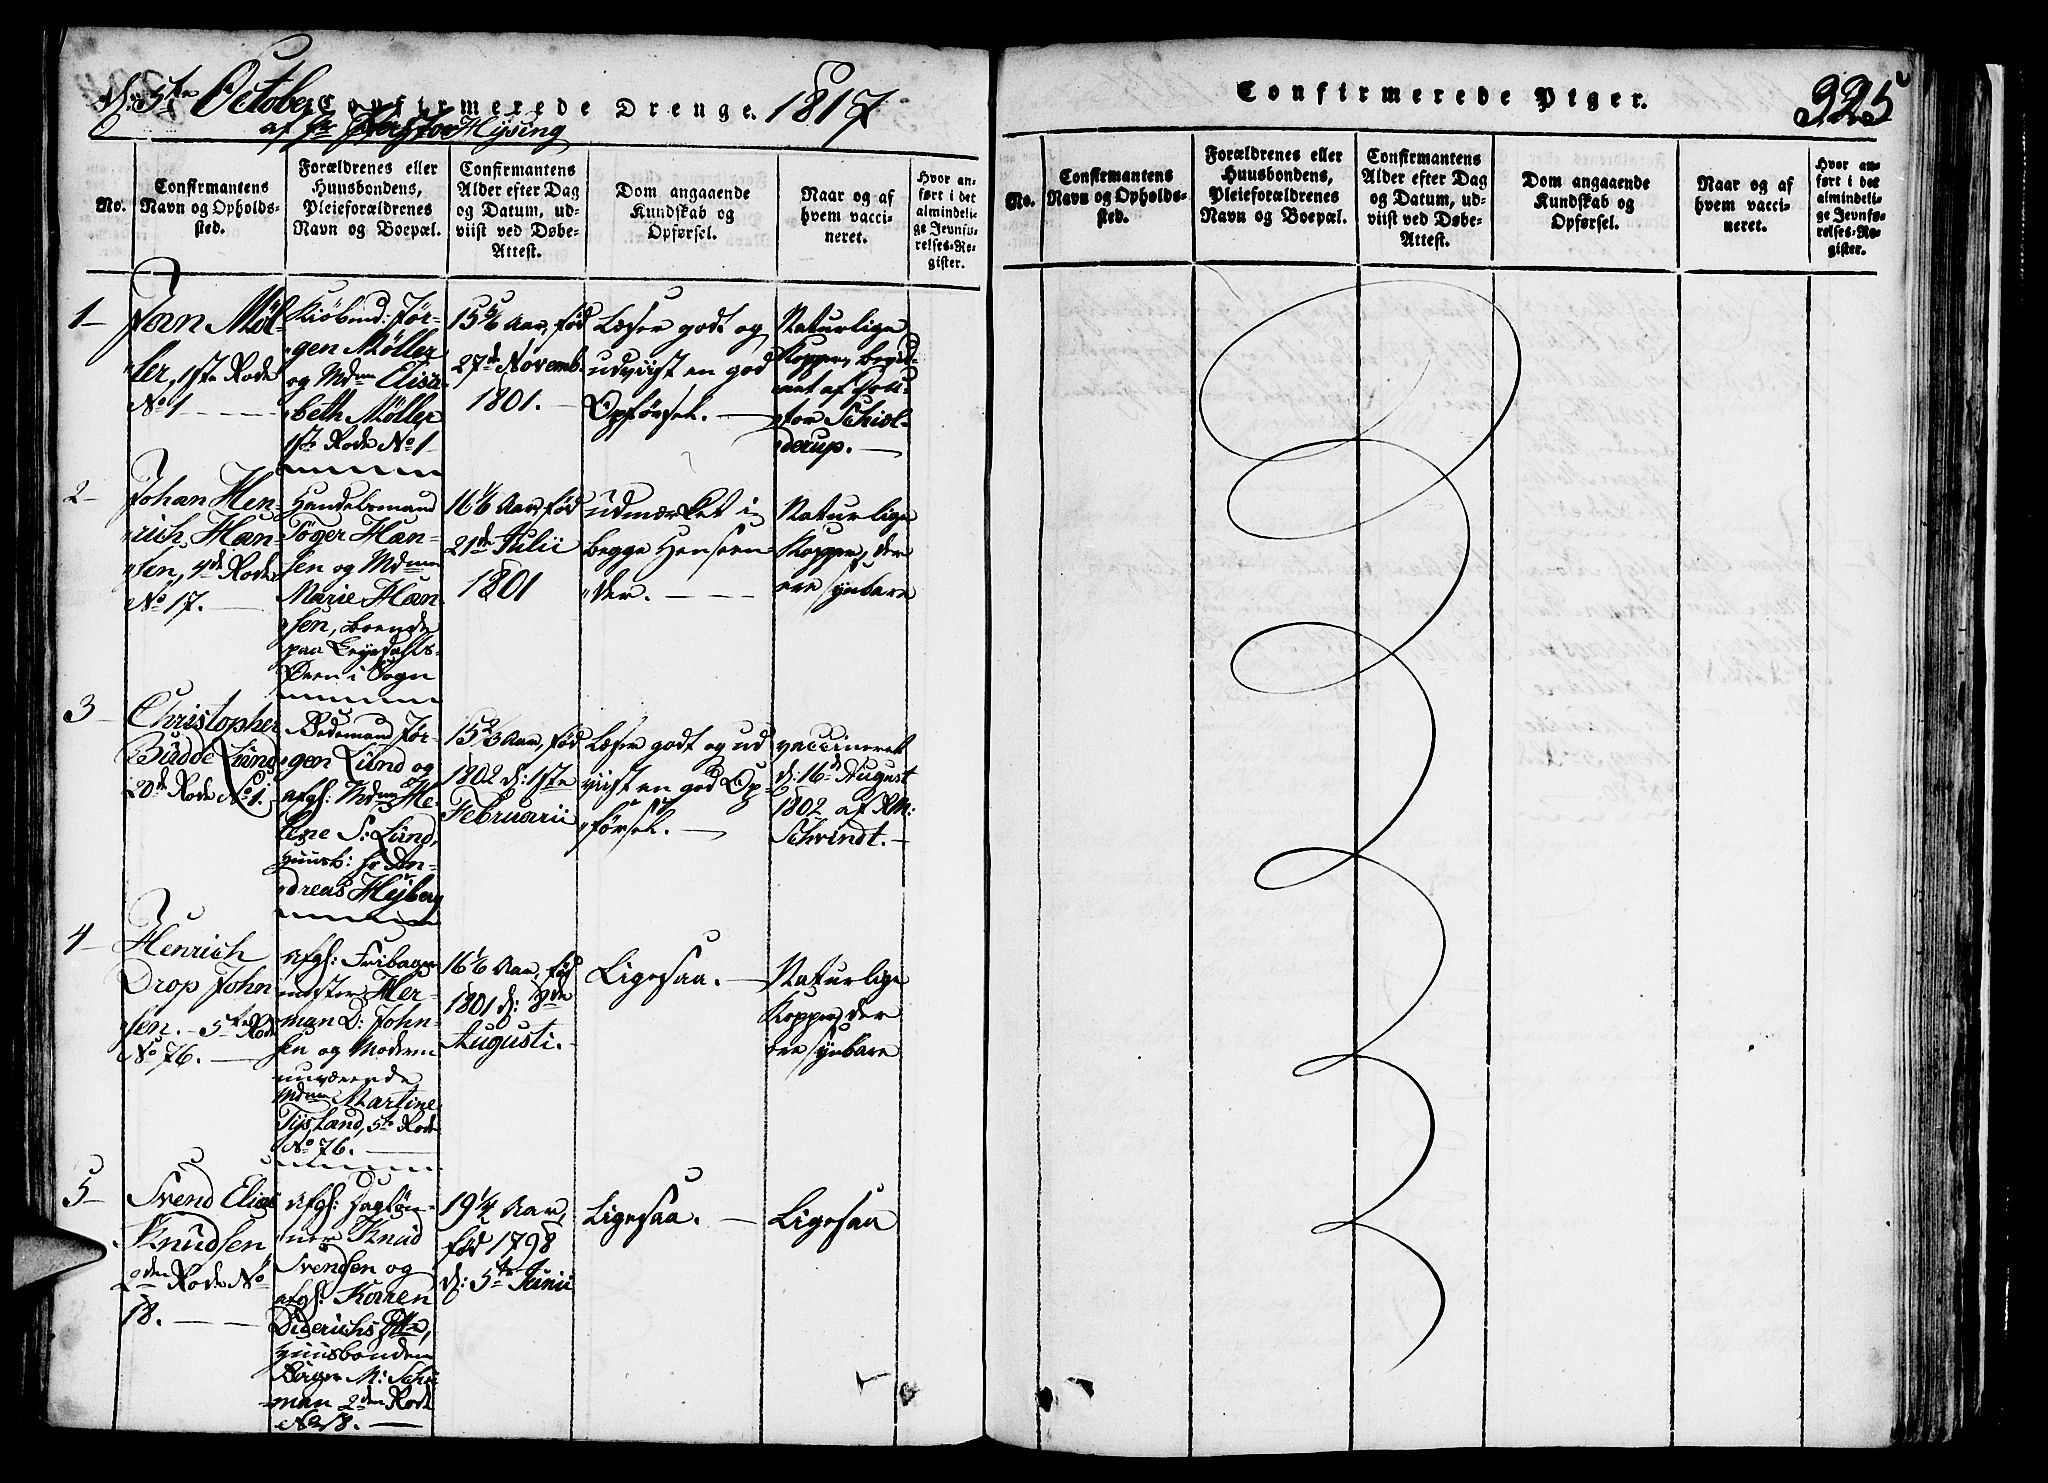 d: 5te October Confirmerede Drenge. 1817
af Hr Pastor Hysing
No.
Confirmantens
Navn og Opholds-
sted.
Forældrenes eller
Huusbondens,
Pleieforældrenes
Navn og Boepæl.
Confirmantens
Alder efter Dag
og Datum, ud-
viist ved Døbe-
Attest.
Dom angaaende
Kundskab og
Opførsel.
Naar og af
hvem vacci-
neret.
Hvor an-
ført i det
almindeli-
ge Jevnfø-
relses-Re-
gister.
1
Jøen Møl-
ler, 1ste Rode
No 1
Kiøbmd: Jør-
gen Møller
og Mdme Elisa-
beth Møller
1ste Rode No 1
15 5/6 Aar, fød
27de Novemb.
1801.
Læser godt og
udviist en god
Opførsel.
Naturlige
Kopper, begid-
net af Doc-
tor Schiøl-
derup.
2
Johan Hen-
rich Han-
sen, 4de Rode
No 17.
Handelsmand
Tøger Han-
sen og Mdme
Marie Han-
sen, boende
paa Leyrdahls-
Øren i Sogn
16 1/6 Aar, fød
21de Julii
1801
udmærket i
begge Henseen-
der.
Naturlige
Kopper, der
ere synbare
3
Christopher
Budde Lund
20de Rode No 1.
Bedemand Jør-
gen Lund og
afgl: Mdme He-
lene S: Lund,
Huusb: hr An-
dreas Heiberg
15 2/3 Aar, fød
1802 d: 1ste
Februarii
Læser godt og ud
viist en god Op-
førsel.
vaccineret
d: 16de August
1802 af RM:
Schvindt.
4
Henrich
Drop John
sen. 5te Rode
No 76.
Afgl: Fribager
mester Her-
man D: John-
sen og Moderen
nuværende
Mdme Martine
Tysland, 5te Rode
No 76.
16 1/6 Aar, fød
1801 d: 8de
Augusti.
Ligesaa.
Naturlige
Kopper, der
ere synbare
5
Svend Elias
Knudsen
2den Rode No
18.
Afgl: Dagløn-
ner Knud
Svendsen og
afgl: Karen
Diderichs Dtr,
Huusbonden
Birger M: Schu
man 2den Rode
No 18.
19 1/4 Aar,
fød 1798
d: 5te Junii
Ligesaa.
Ligesaa
Confirmerede Piger.
325
No.
Confirmantens
Navn og Opholds-
sted.
Forældrenes eller
Huusbondens,
Pleieforældrenes
Navn og Boepæl.
Confirmantens
Alder efter Dag
og Datum, ud-
viist ved Døbe-
Attest.
Dom angaaende
Kundskab og
Opførsel.
Naar og af
hvem vacci-
neret.
Hvor an-
ført i det
almindeli-
ge Jevnfø-
relses-Re-
gister.